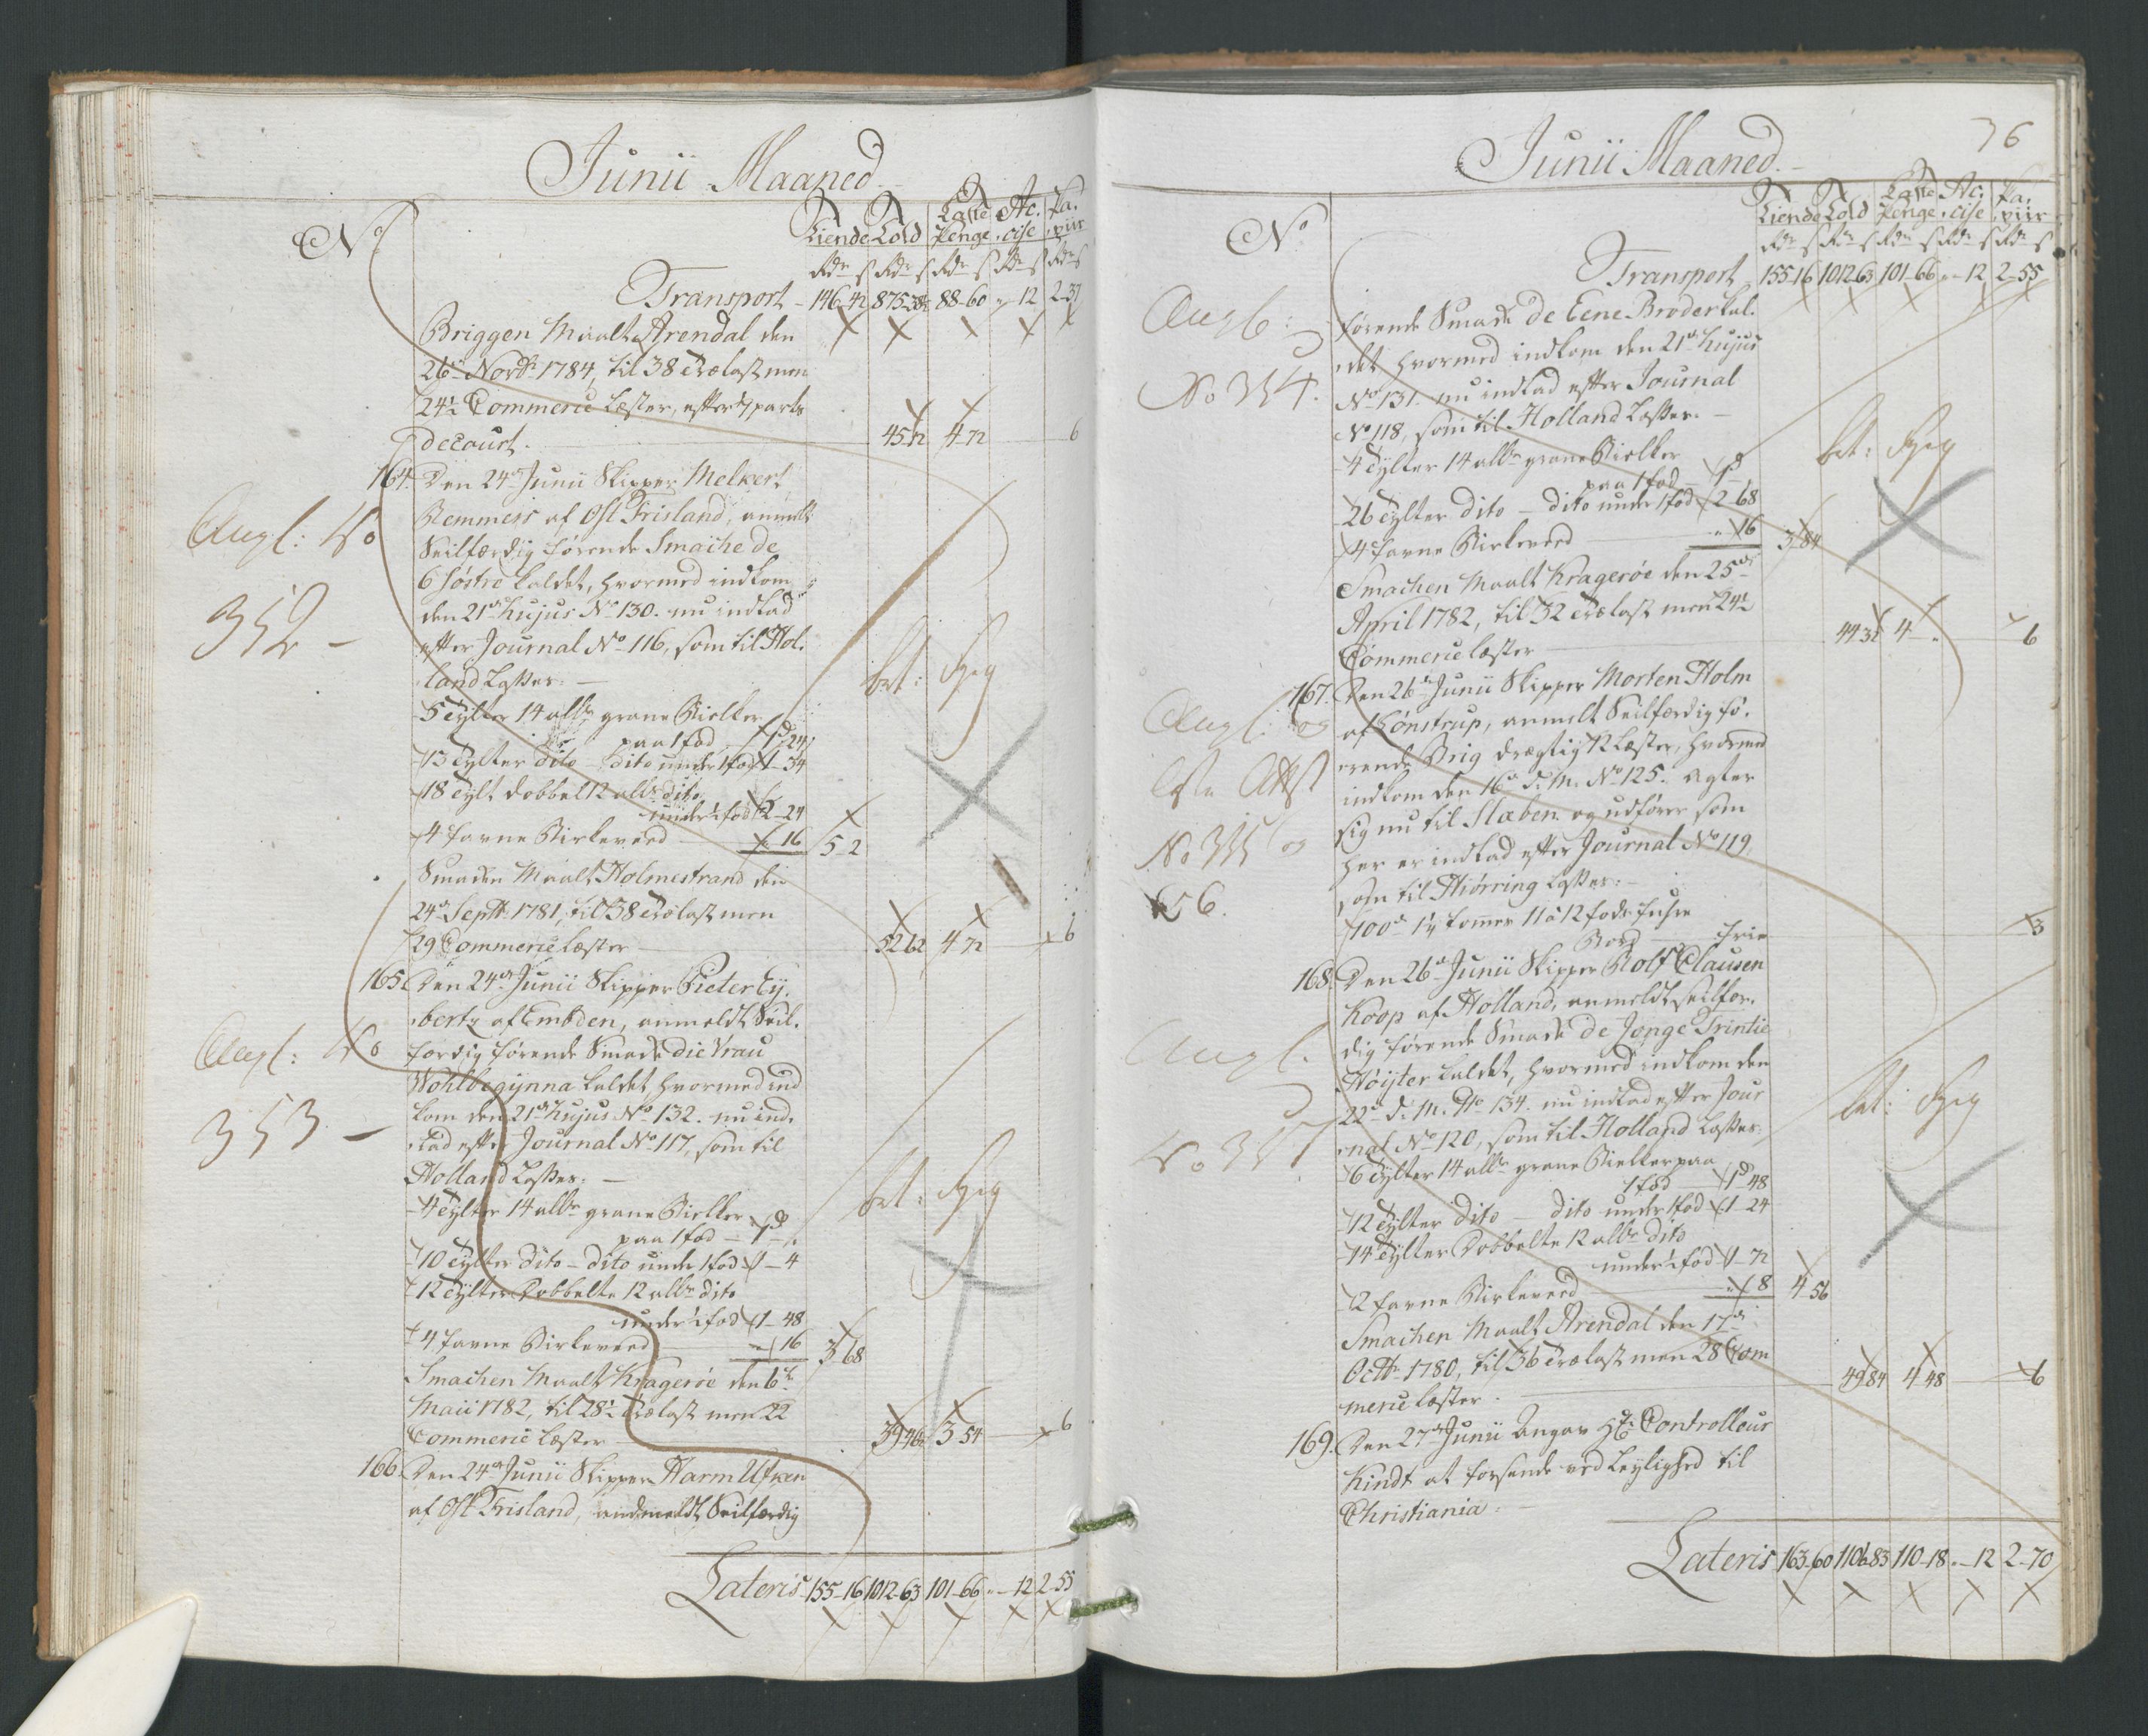 Junii Maaned
No
Tiende Told Laste Penge Ac. cise Pa. piir
Rdr s Rdr s Rdr s Rdr s Rdr s
Transport 146-42 875-38½ 88-60 „-12 2-37
Briggen Maalt Arendal den
26de Novbr 1784, til 38 Trælast men
24½ Commerce Læster, efter parts
decourt. 45 72 4 72 6
164. Den 24de Junii Skipper Melkert
Remmers af Ost Frisland, anmelt
Seilfærdig førende Smache de
6 Søstre kaldet, hvormed indkom
den 21de hujus No 130. nu indlad
efter Journal No 116, som til Hol.
land Losses:
Angl: No
352 -
5 Tylter 14 all. grane Bielker
paa 1 fod 1 d 24
13 Tylter dito dito under 1 fod 1-34
18 Tylt dobbelt 12 all. dito
under 1 fod 2-24
4 favne Birkeveed 16 5-2
Smachen Maalt Holmestrand den
24de Septbr 1781, til 38 Trælast men
29 Commerce læster 52 62 4 72 6
165. Den 24de Junii Skipper Pieter Ty.
bertz af Embden, anmeldt Seil.
færdig førende Smach die Vrau
Wohlbegynna kaldet hvormed ind
kom den 21de hujus No 132. nu ind.
lad efter Journal No 117, som til
Holland Losses:
Angl: No
353 -
4 Tylter 14 all. grane Bielker
paa 1 fod - 1 d „
10 Tylter dito - dito under 1 fod 1-4
12 Tylter Dobbelte 12 all. dito
under 1 fod 1-48
4 favne Birkeveed 16 3 68
Smachen Maalt Kragerøe den 6te
Maii 1782, til 28½ Trælast men 22
Commerce læster 39 46 3 54 6
166. Den 24de Junii Skipper Harm Ufken
af Ost Frisland, anmeldt Seilfærdig
Lateris 155-16 1012-63 101-66 „-12 2-55
Junii Maaned.
36
No
Tiende Told Laste Penge Ac. cise Pa. piir
Rdr s Rdr s Rdr s Rdr s Rdr s
Transport 155 16 1012 63 101-66 „-12 2-55
førende Smach de Eene Broder kal.
det hvormed indkom den 21de hujus
No 131. nu indlad efter Journal
No 118, som til Holland Losses.
Angl:
No 354.
4 Tylter 14 all. grane Bielker
paa 1 fod - 1 d
26 Tylter dito - dito under 1 fod 2 68
4 favne Birkeveed 16 3 84
Smachen Maalt Kragerøe den 25de
April 1782, til 32 Trælast men 24½
Commerce læster 44 3 4 - 6
167. Den 26de Junii Skipper Morten Holm
af Lønstrup, anmelt Seilfærdig fø.
rende Brig drægtig 12 Læster, hvormed
indkom den 16de d. M. No 125. Agter
sig nu til Slaben og udfører som
her er indlad efter Journal No 119,
som til Hiørring Losses:
Angl: og
No 355 og
56.
100de 1¼ tommer 11 á 12 fods furre
Bord frie 3
168. Den 26de Junii Skipper Rolf Clausen
Koop af Holland, anmeldt seilfær.
dig førende Smach de Jonge Trintie
Høyter kaldet, hvormed indkom den
22de d. M. No 134. nu indlad efter Jour
nal No 120, som til Holland Losses:
Angl.
No 357
6 Tylter 14 all. grane Bielker paa
1 fod 1 d 48
12 Tylter dito - dito under 1 fod 1-24
14 Tylter Dobbelte 12 all. dito
under 1 fod 1-72
2 favne Birkeveed 8 4 56
Smachen Maalt Arendal den 17de
Octbr 1780, til 36 Trælast men 28 Com
merce læster. 49 84 4 48 6
169. Den 27de Junii Angav Hr. Controlleur
Kindt at forsende ved Leylighed til
Christiania.
Lateris 163-60 1106-83 110-18 „-12 2-70